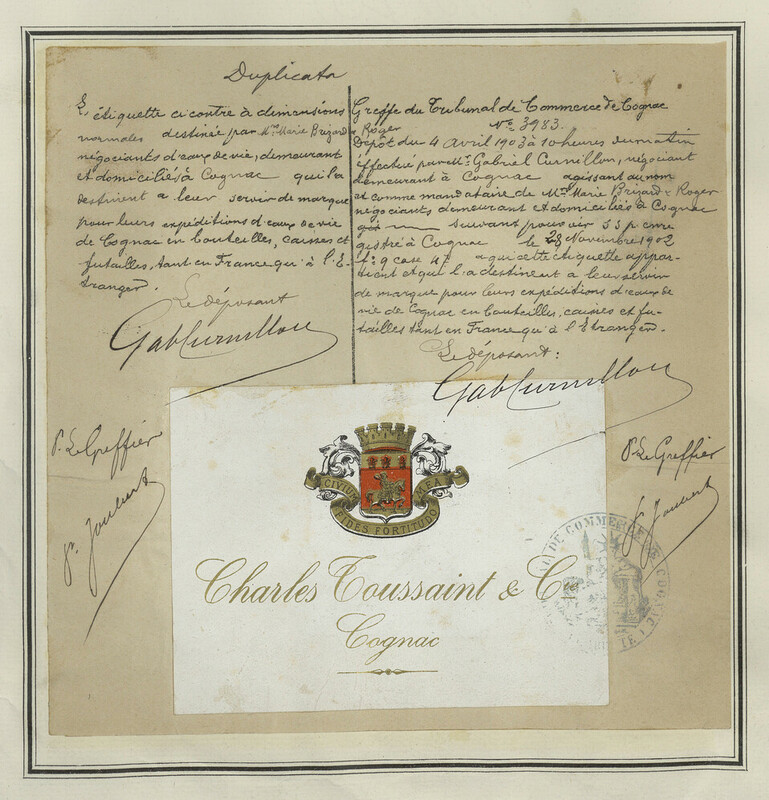 Duplicata
L'étiquette ci contre à dimensions
normales destinée par Mrs Marie Brizard & Roger
négociants d'eaux de vie, demeurant
et domiciliés à Cognac qui la
destinent a leur servir de marque
pour leurs expéditions d'eaux de vie
de Cognac en bouteilles, caisses et
futailles, tant en France qu'à l'E-
tranger.
Le déposant
Gab Curnillon
Greffe du Tribunal de Commerce de Cognac
No 3983.
Dépôt du 4 Avril 1903 à 10 heures du matin
éffectué par Mr Gabriel Curnillon, négociant
demeurant à Cognac agissant au nom
et comme mandataire de Mrs Marie Brizard & Roger
négociants demeurant et domiciliés à Cognac
suivant pouvoir s s p enre
gistré à Cognac le 28 Novembre 1902
fo 9 case 47 a qui cette etiquette appar-
tient et qui l'a destinent a leur servir
de marque pour leurs expéditions d'eaux de
vie de Cognac en bouteilles, caisses et fu-
tailles tant en France qu'à l'Etranger.
Le déposant:
Gab Curnillon
Pr Le Greffier
Pr Le Greffier
CIVIUM
FIDES FORTITUDO
MEA
Charles Toussaint & Cie
Cognac
DE COMMERCE DE COGNAC